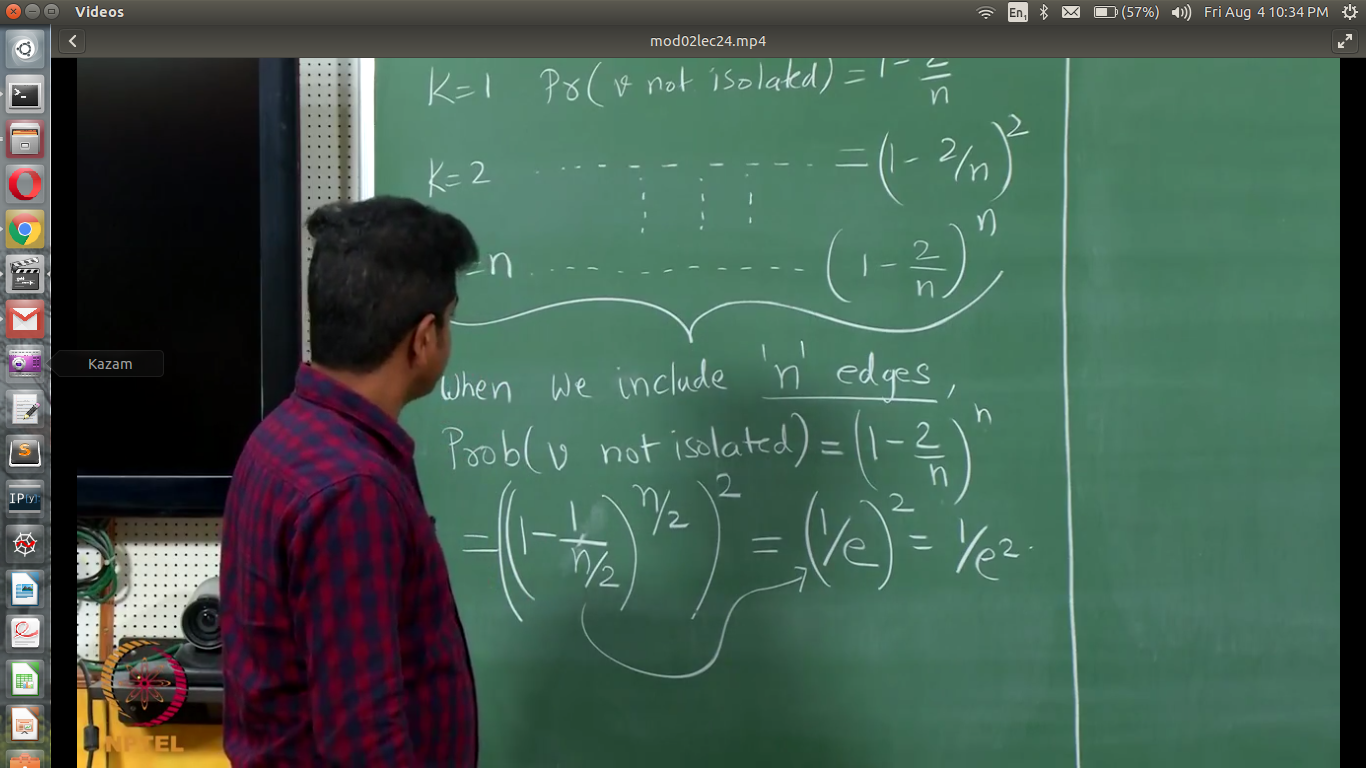 Videos
En1 (57%) Fri Aug 4 10:34 PM
mod02lec24.mp4
K=1 Pr(v not isolated) = 1 - 2/n
K=2 = (1 - 2/n)^2
=n (1 - 2/n)^n
Kazam
When we include 'n' edges,
Prob(v not isolated) = (1 - 2/n)^n
= ((1 - 1/n/2)^n/2)^2 = (1/e)^2 = 1/e^2.
IP[y]:
NPTEL